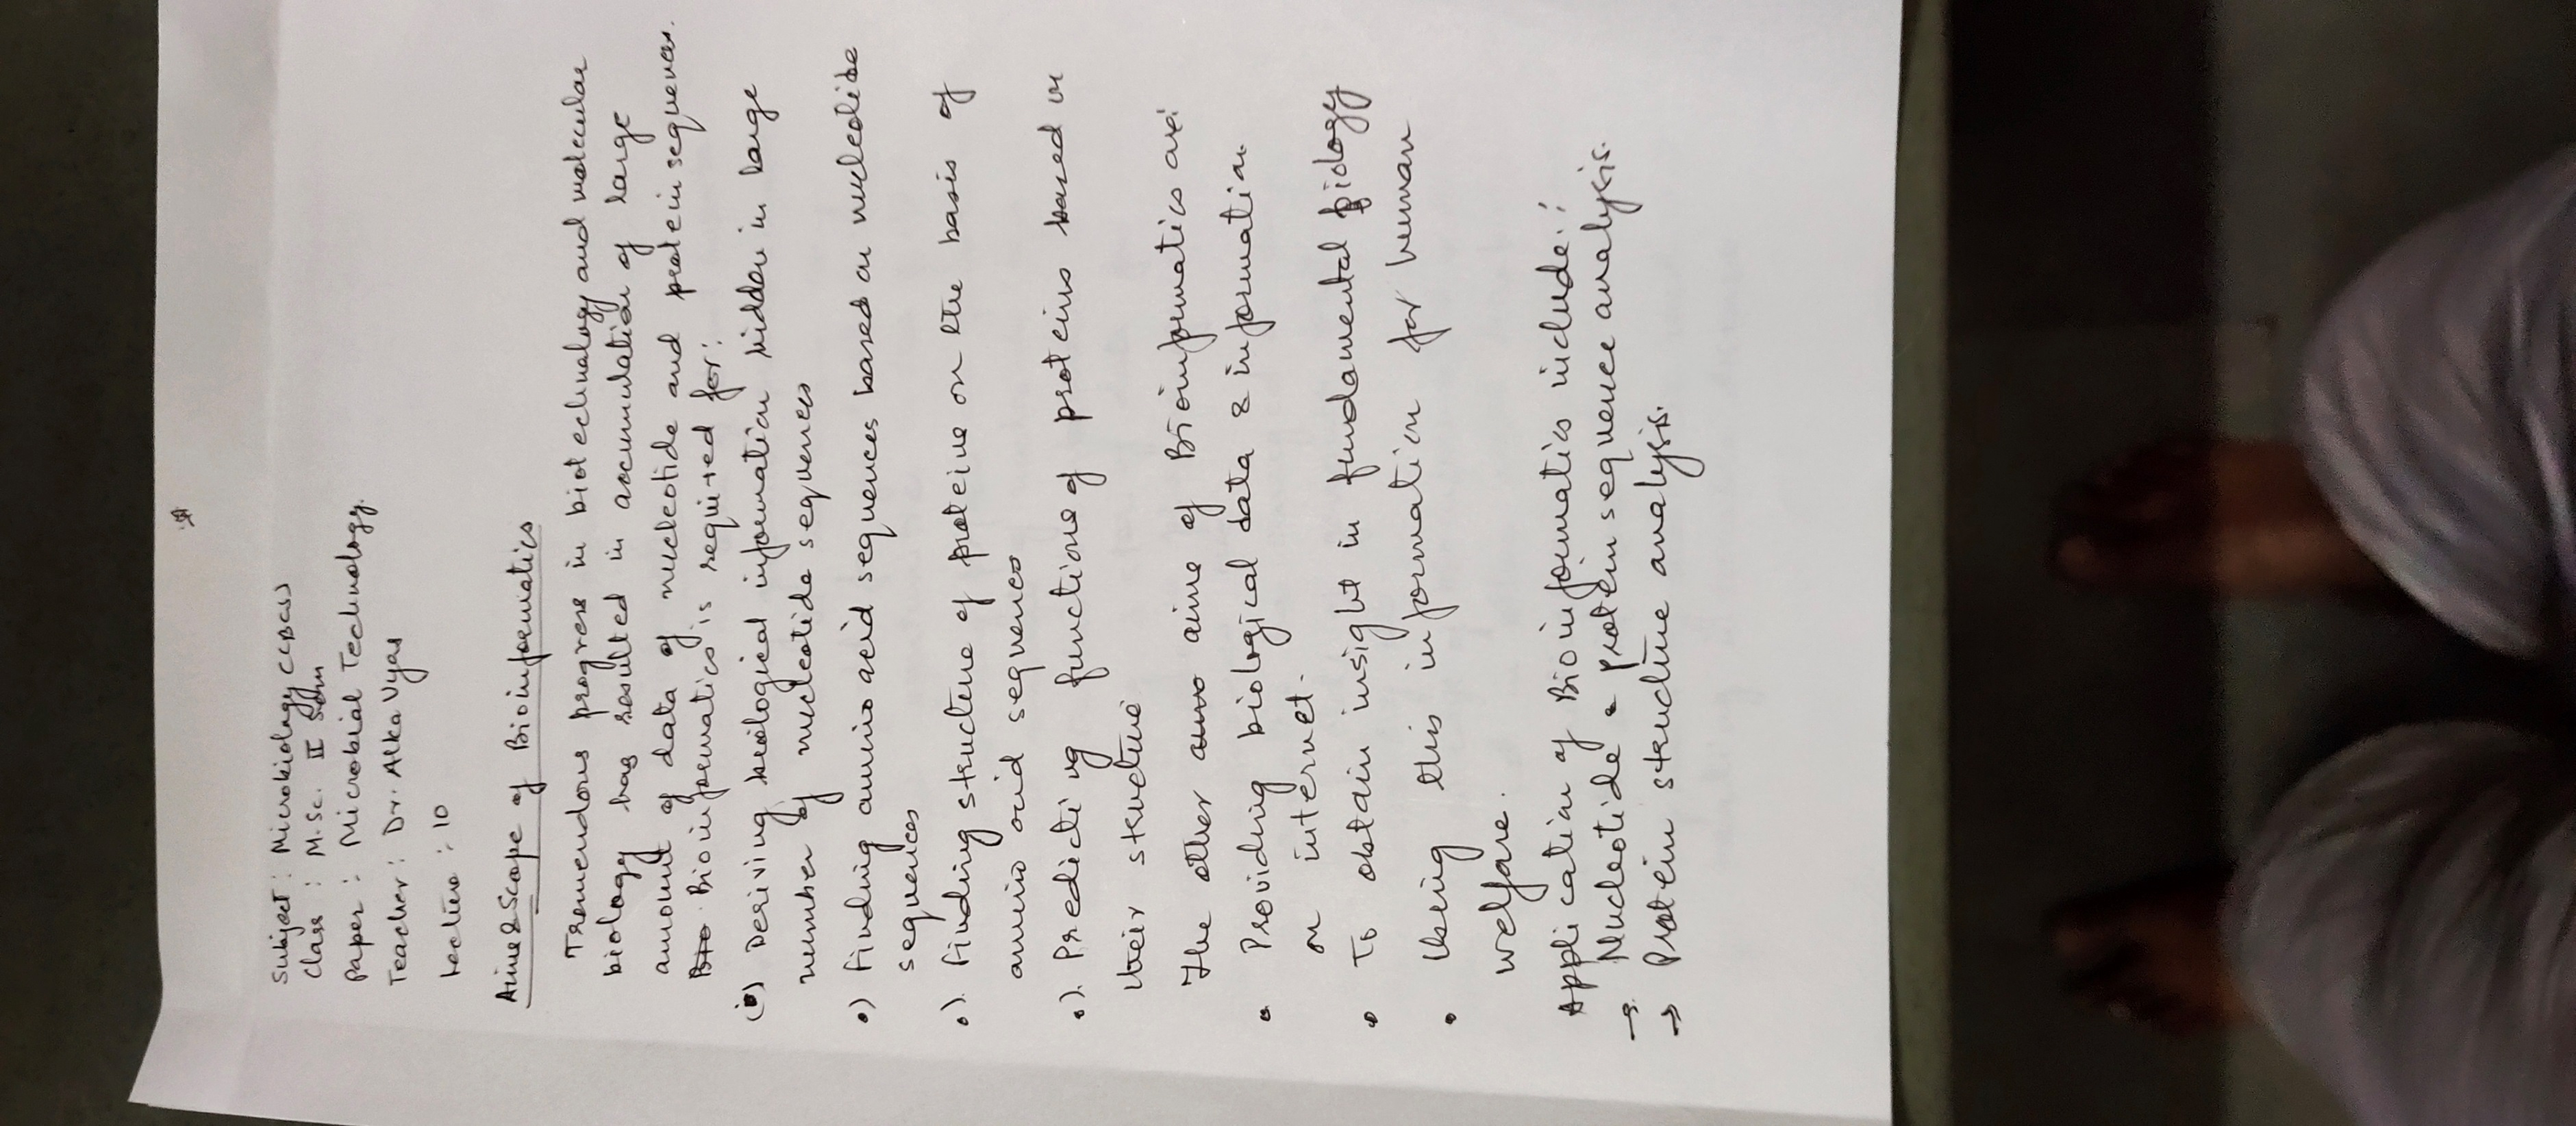 Subject : Microbiology (CBCS)
Class : M.Sc. II Sem
Paper : Microbial Technology.
Teacher : Dr. Alka Vyas
Lecture : 10
Aims & Scope of Bioinformatics
Tremendous progress in biotechnology and molecular
biology has resulted in accumulation of large
amount of data of nucleotide and protein sequences.
Bio. Bioinformatics is required for:
Deriving biological information hidden in large
number of nucleotide sequences
•) Finding amino acid sequences based on nucleotide
sequences
•). Finding structure of proteins on the basis of
amino acid sequences
•). Predicting functions of proteins based on
their structure
The other aims of Bioinformatics are:
• Providing biological data & information
on internet.
• To obtain insight in fundamental biology
• Using this information for human
welfare.
Application of Bioinformatics include:
→ Nucleotide & Protein sequence analysis.
→ Protein structure analysis.